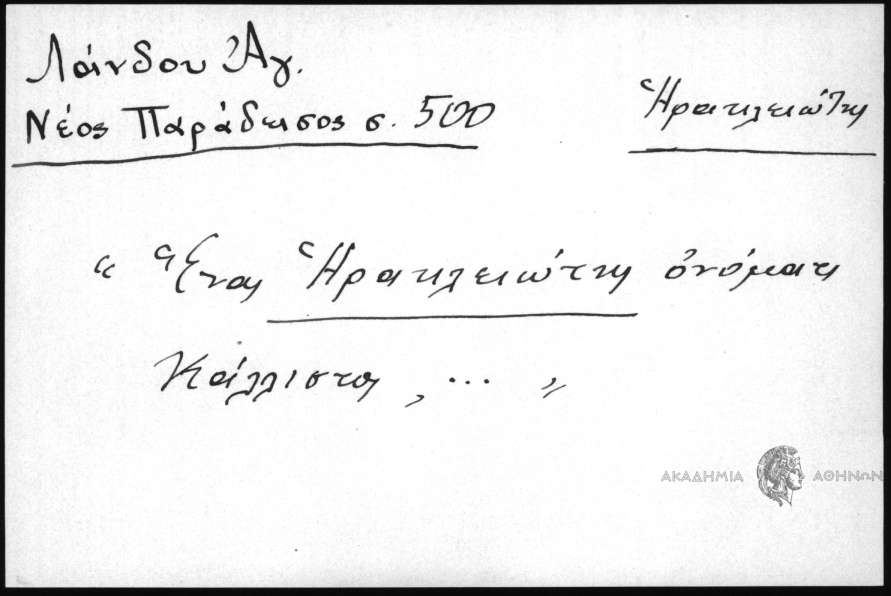 Λάνδου Ἀγ.
Νέος Παράδεισος σ. 500
Ἡρακλειώτης
" Ἕνας Ἡρακλειώτης ὀνόματι
Κάλλιστος, ... "
ΑΚΑΔΗΜΙΑ ΑΘΗΝΩΝ